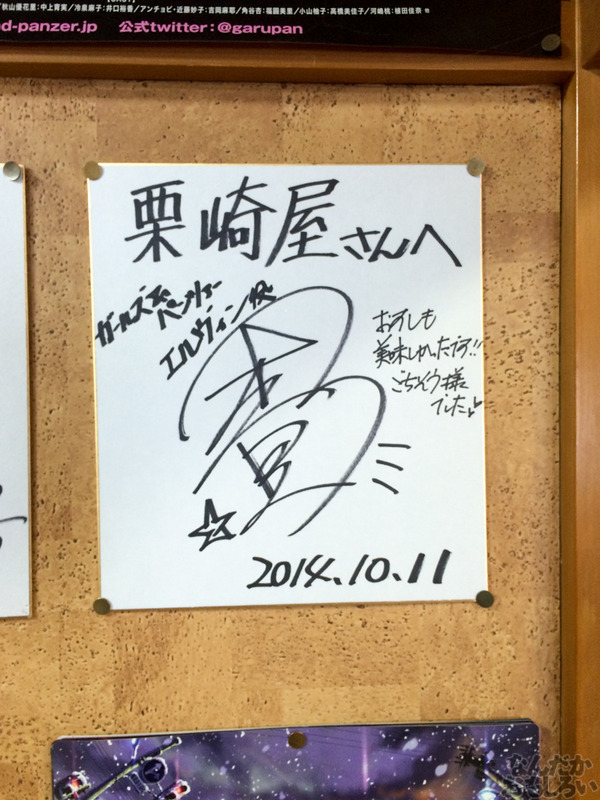 秋山優花里:中上育実／冷泉麻子:井口裕香／アンチョビ・近藤妙子:吉岡麻耶／角谷杏:福圓美里／小山柚子:高橋美佳子／河嶋桃:植田佳奈 他
d-panzer.jp 公式twitter:@garupan
栗崎屋さんへ
ガールズ&パンツァー
エルヴィン役
おすしも
美味しかったです!!
ごちそう様
でした
2014.10.11
なんだか
おもしろい